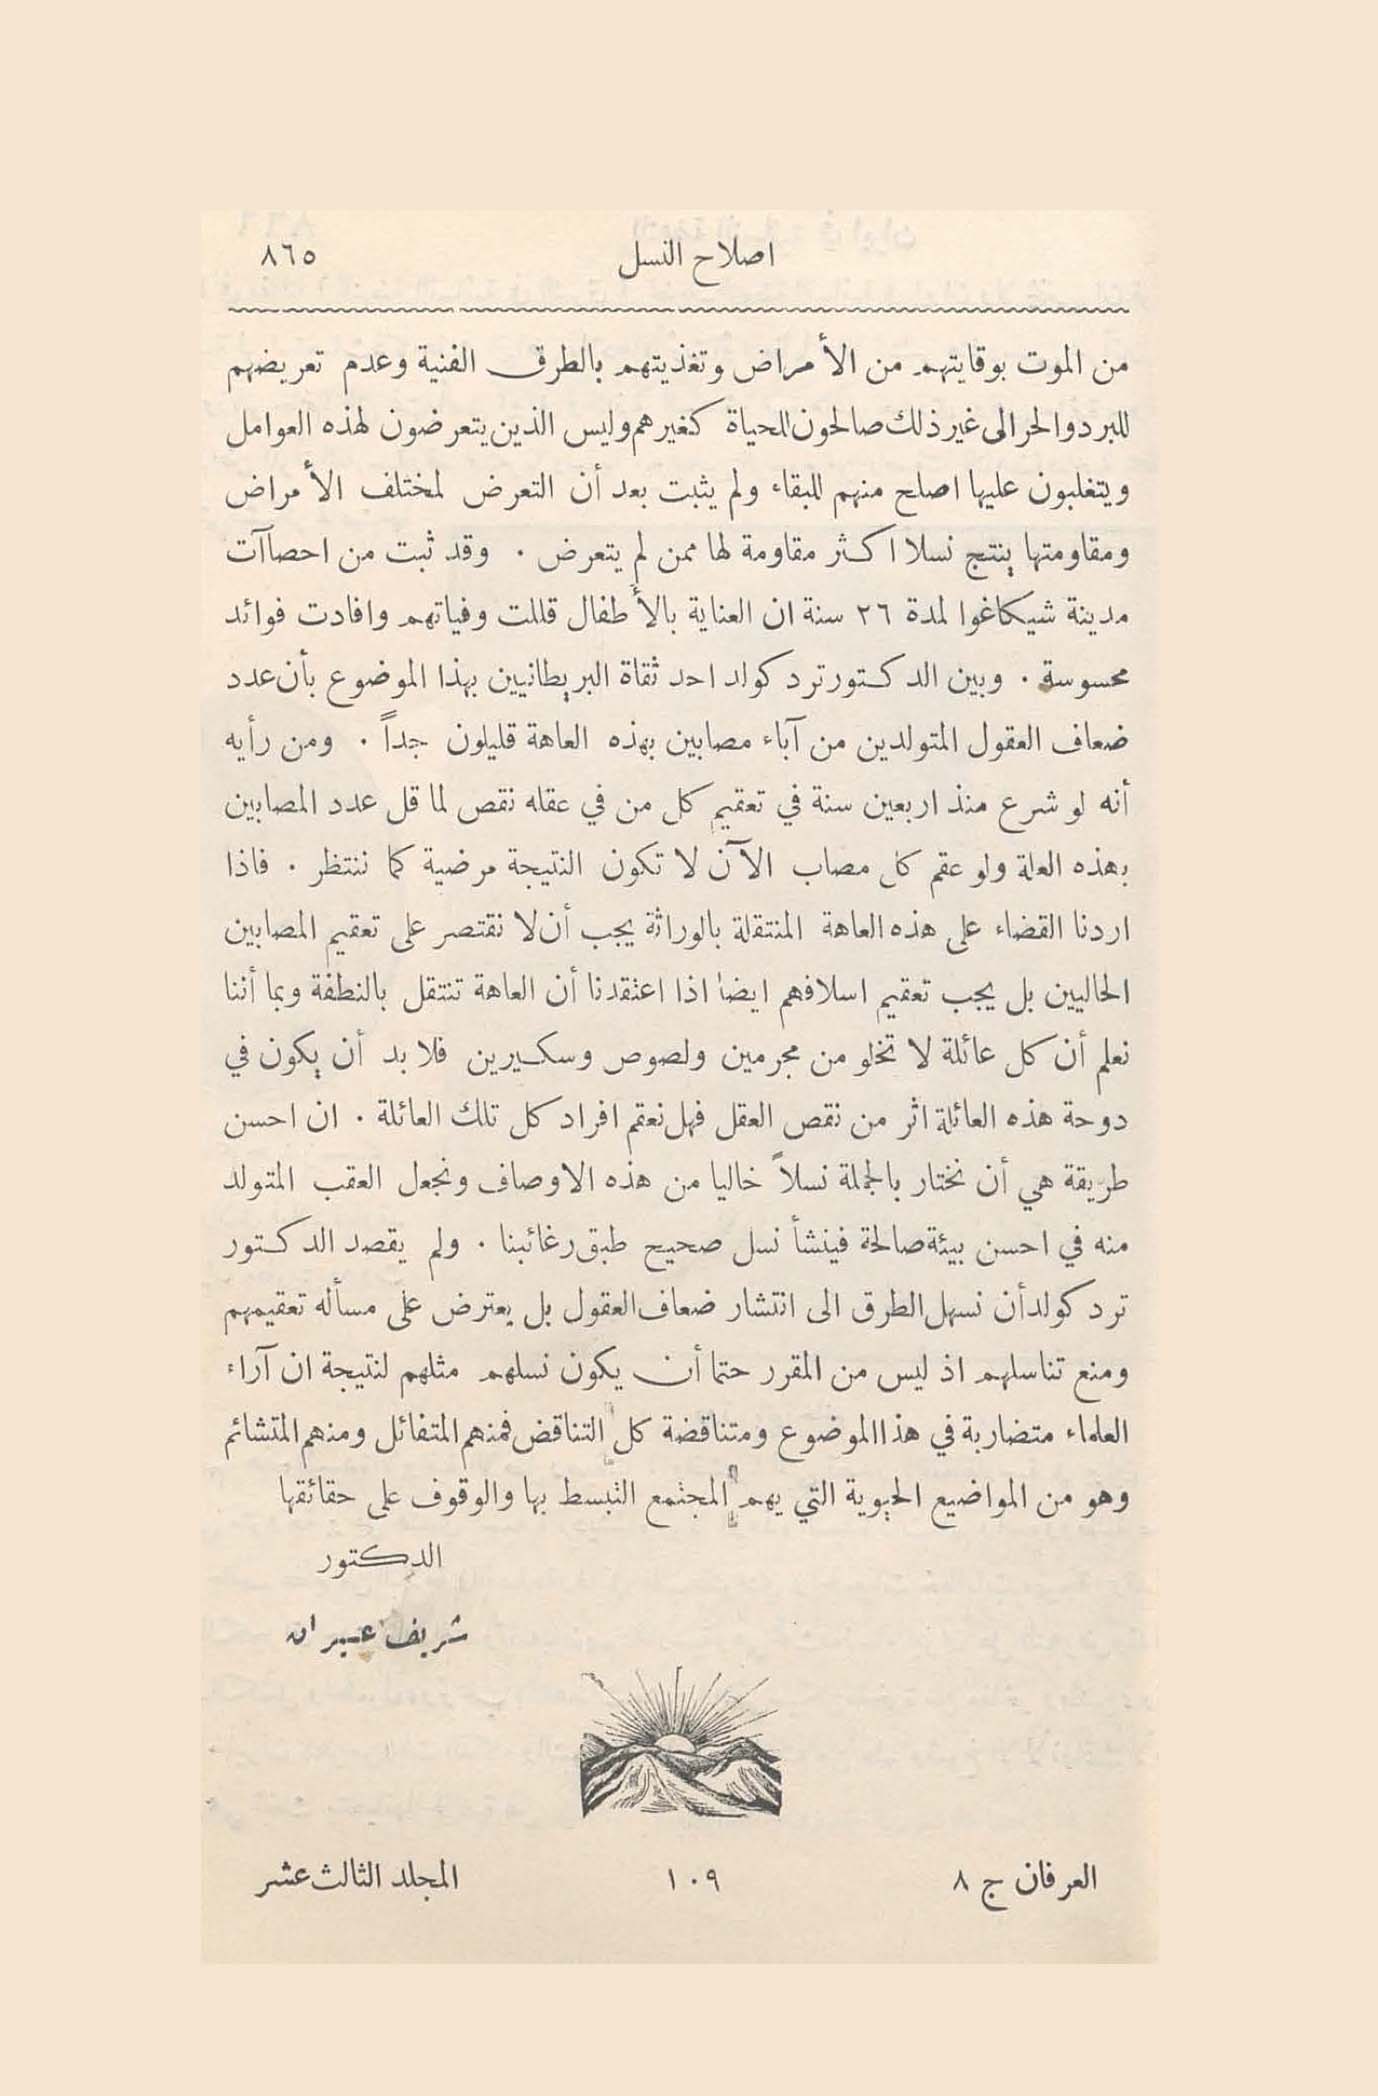 اصلاح النسل ٨٦٥
من الموت بوقايتهم من الأمراض وتغذيتهم بالطرق الفنية وعدم تعريضهم
للبرد والحر الى غير ذلك صالحون للحياة كغيرهم وليس الذين يتعرضون لهذه العوامل
ويتغلبون عليها اصلح منهم للبقاء ولم يثبت بعد أن التعرض لمختلف الأمراض
ومقاومتها ينتج نسلا اكثر مقاومة لها ممن لم يتعرض . وقد ثبت من احصاآت
مدينة شيكاغوا لمدة ٢٦ سنة ان العناية بالأطفال قللت وفياتهم وافادت فوائد
محسوسة . وبين الدكتور ترد كولد احد ثقاة البريطانيين بهذا الموضوع بأن عدد
ضعاف العقول المتولدين من آباء مصابين بهذه العاهة قليلون جداً . ومن رأيه
أنه لو شرع منذ اربعين سنة في تعقيم كل من في عقله نقص لما قل عدد المصابين
بهذه العلة ولو عقم كل مصاب الآن لا تكون النتيجة مرضية كما ننتظر . فاذا
اردنا القضاء على هذه العاهة المنتقلة بالوراثة يجب أن لا نقتصر على تعقيم المصابين
الحاليين بل يجب تعقيم اسلافهم ايضاً اذا اعتقدنا أن العاهة تنتقل بالنطفة وبما أننا
نعلم أن كل عائلة لا تخلو من مجرمين ولصوص وسكيرين فلا بد أن يكون في
دوحة هذه العائلة اثر من نقص العقل فهل نعقم افراد كل تلك العائلة . ان احسن
طريقة هي أن نختار بالجملة نسلاً خاليا من هذه الاوصاف ونجعل العقب المتولد
منه في احسن بيئة صالحة فينشأ نسل صحيح طبق رغائبنا . ولم يقصد الدكتور
ترد كولد أن نسهل الطرق الى انتشار ضعاف العقول بل يعترض على مسأله تعقيمهم
ومنع تناسلهم اذ ليس من المقرر حتما أن يكون نسلهم مثلهم لنتيجة ان آراء
العلماء متضاربة في هذا الموضوع ومتناقضة كل التناقض فمنهم المتفائل ومنهم المتشائم
وهو من المواضيع الحيوية التي يهم المجتمع التبسط بها والوقوف على حقائقها
الدكتور
شريف عسيران
العرفان ج ٨ ١٠٩ المجلد الثالث عشر